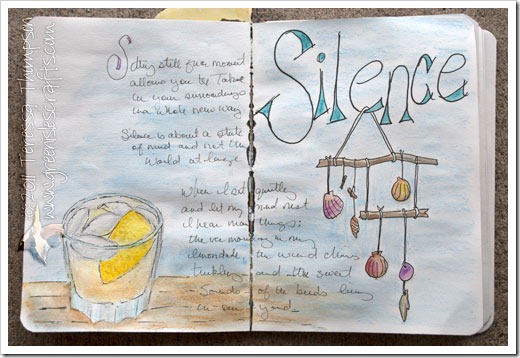 Sitting still for a moment
allows you to Take
in your surroundings
in a whole new way
Silence is about a state
of mind and not the
World at large
When I sit quietly
and let my mind rest
I hear many things:
the ice moving in my
lemonade, the wind chimes
tinkling and the sweet
Sounds of the birds
in our yard.
Silence
©2011 Teresa Thompson
www.greenishescrafts.com